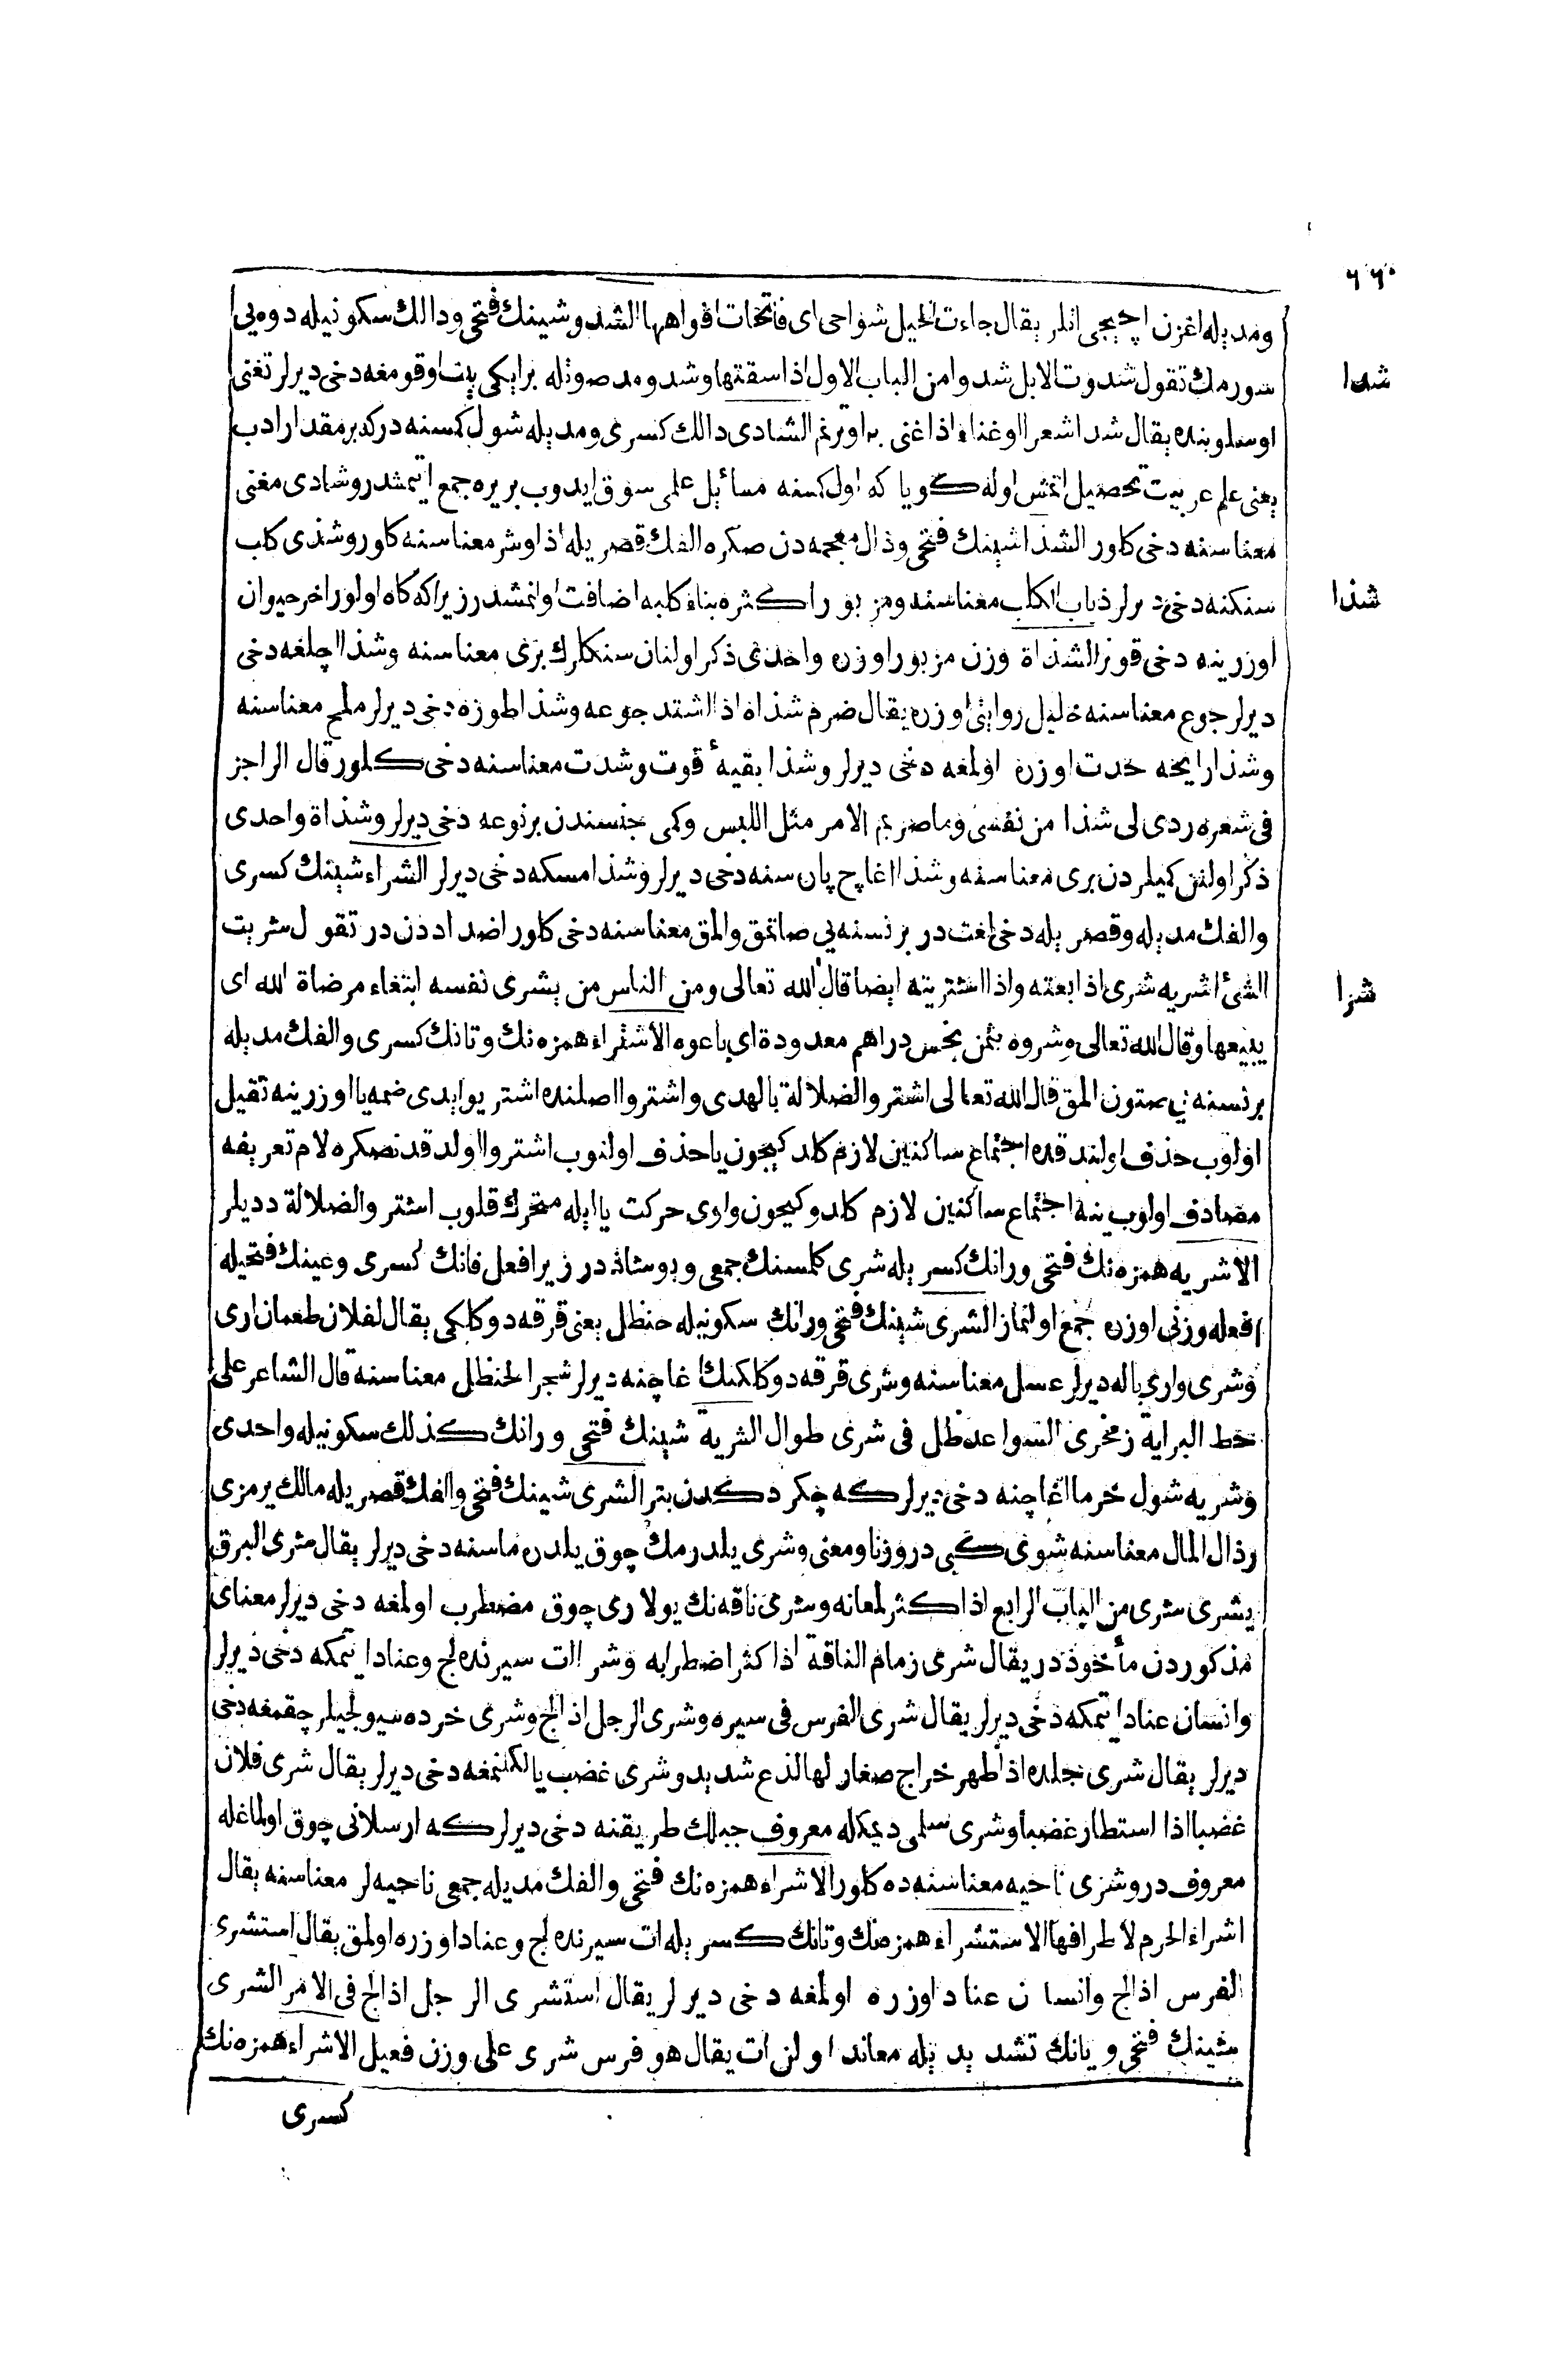 ٦٦٠
ومديله اغزن اچيجى اتلر يقال جاءت الخيل شواحى اى فاتحات افواهها الشدو شينك فتحى ودالك سكونيله دوه يى
شدا
سورمك تقول شدوت الابل شدوا من الباب الاول اذا سقتها وشدو مد صوتله برايكى بيت اوقومغه دخى ديرلر تغنى
اوسلوبنده يقال شدا شعرا اوغناء اذا غنى به اوترنم الشادى دالك كسرى ومديله شول كمسنه دركه بر مقدار ادب
يعنى علم عربيت تحصيل اتمش اوله كويا كه اول كمسنه مسائل علمى سوق ايدوب بريره جمع اتمشدر وشادى مغنى
معناسنه دخى كلور الشذا شينك فتحى وذال معجمه دن صكره الفك قصريله اذا وشر معناسنه كلور وشذى كلب
شذا
سنكنه دخى ديرلر ذباب الكلب معناسنه ومزبور اكثره بناء كلبه اضافت اولنمشدر زيراكه كاه اولور اخر حيوان
اوزرينه دخى قونر الشذاة وزن مزبور اوزره واحدى ذكر اولنان سنكلرك برى معناسنه وشذا اچلغه دخى
ديرلر جوع معناسنه خليل روايتى اوزره يقال ضرم شذاه اذا اشتد جوعه وشذا طوزه دخى ديرلر ملح معناسنه
وشذا رايحه حدت اوزره اولمغه دخى ديرلر وشذا بقيهٔ قوت وشدت معناسنه دخى كلور قال الراجز
فى شعره ردى لى شذا من نفسى وماصريم الامر مثل اللبس وكمى جنسندن برنوعه دخى ديرلر وشذاة واحدى
ذكر اولنن كميلردن برى معناسنه وشذا اغاچ پاره سنه دخى ديرلر وشذا مسكه دخى ديرلر الشراء شينك كسرى
والفك مديله وقصر يله دخى لغت در بر نسنه يى صاتمق والمق معناسنه دخى كلور اضداددن در تقول شريت
الشئ اشريه شرى اذا بعته واذا اشتريته ايضا قال الله تعالى ومن الناس من يشرى نفسه ابتغاء مرضاة الله اى
شرا
يبيعها وقال الله تعالى وشروه بثمن بخس دراهم معدودة اى باعوه الاشتراء همزه نك وتانك كسرى والفك مديله
برنسنه يى صتون المق قال الله تعالى اشتروا الضلالة بالهدى واشتروا اصلنده اشتريوا ايدى ضمه يا اوزرينه ثقيل
اولوب حذف اولندقده اجتماع ساكنين لازم كلدكيچون يا حذف اولنوب اشتروا اولدقدنصكره لام تعريفه
مصادف اولوب ينه اجتماع ساكنين لازم كلدوكيچون واوى حركت يا ايله متحرك قلوب اشتروالضلالة دديلر
الاشريه همزه نك فتحى ورانك كسر يله شرى كلمسنك جمعى وبو شاذ در زيرا فعل فانك كسرى وعينك فتحيله
افعله وزنى اوزره جمع اولنماز الشرى شينك فتحى ورانك سكونيله حنظل يعنى قرقه دوكلكى يقال لفلان طعمان ارى
وشرى وارى باله ديرلر عسل معناسنه وشرى قرقه دوكلكنك اغاچنه ديرلر شجر الحنظل معناسنه قال الشاعر على
حط البراية زمخرى السواعد ظل فى شرى طوال الشرية شينك فتحى ورانك كذلك سكونيله واحدى
وشريه شول خرما اغاچنه دخى ديرلر كه چكردكدن بتر الشرى شينك فتحى والفك قصر يله مالك يرمزى
رذال المال معناسنه شوى كبى در وزنا ومعنى وشرى يلدرمك چوق يلدره ماسنه دخى ديرلر يقال شرى البرق
يشرى شرى من الباب الرابع اذا كثر لمعانه وشرى ناقه نك يولارى چوق مضطرب اولمغه دخى ديرلر معناى
مذكوردن مأخوذدر يقال شرى زمام الناقة اذا كثر اضطرابه وشرا ات سيرنده لج وعناد ايتمكه دخى ديرلر
وانسان عناد ايتمكه دخى ديرلر يقال شرى الفرس فى سيره وشرى الرجل اذا لج وشرى خرده سيولجيلر چقمغه دخى
ديرلر يقال شرى جلده اذا ظهر خراج صغار لها لذع شديد وشرى غضب يالكلنمغه دخى ديرلر يقال شرى فلان
غضبا اذا استطار غضبا وشرى سلمى ديمكله معروف جبلك طريقنه دخى ديرلر كه ارسلانى چوق اولماغله
معروف در وشرى ناحيه معناسنه ده كلور الاشراء همزه نك فتحى والفك مديله جمعى ناحيه لر معناسنه يقال
اشراء الحرم لاطرافها الاستشراء همزه نك وتانك كسر يله ات سيرنده لج وعناد اوزره اولمق يقال استشرى
الفرس اذا لج وانسان عناد اوزره اولمغه دخى ديرلر يقال استشرى الرجل اذا لج فى الامر الشرى
شينك فتحى ويانك تشديد يله معاند اولن ات يقال هو فرس شرى على وزن فعيل الاشراء همزه نك
كسرى